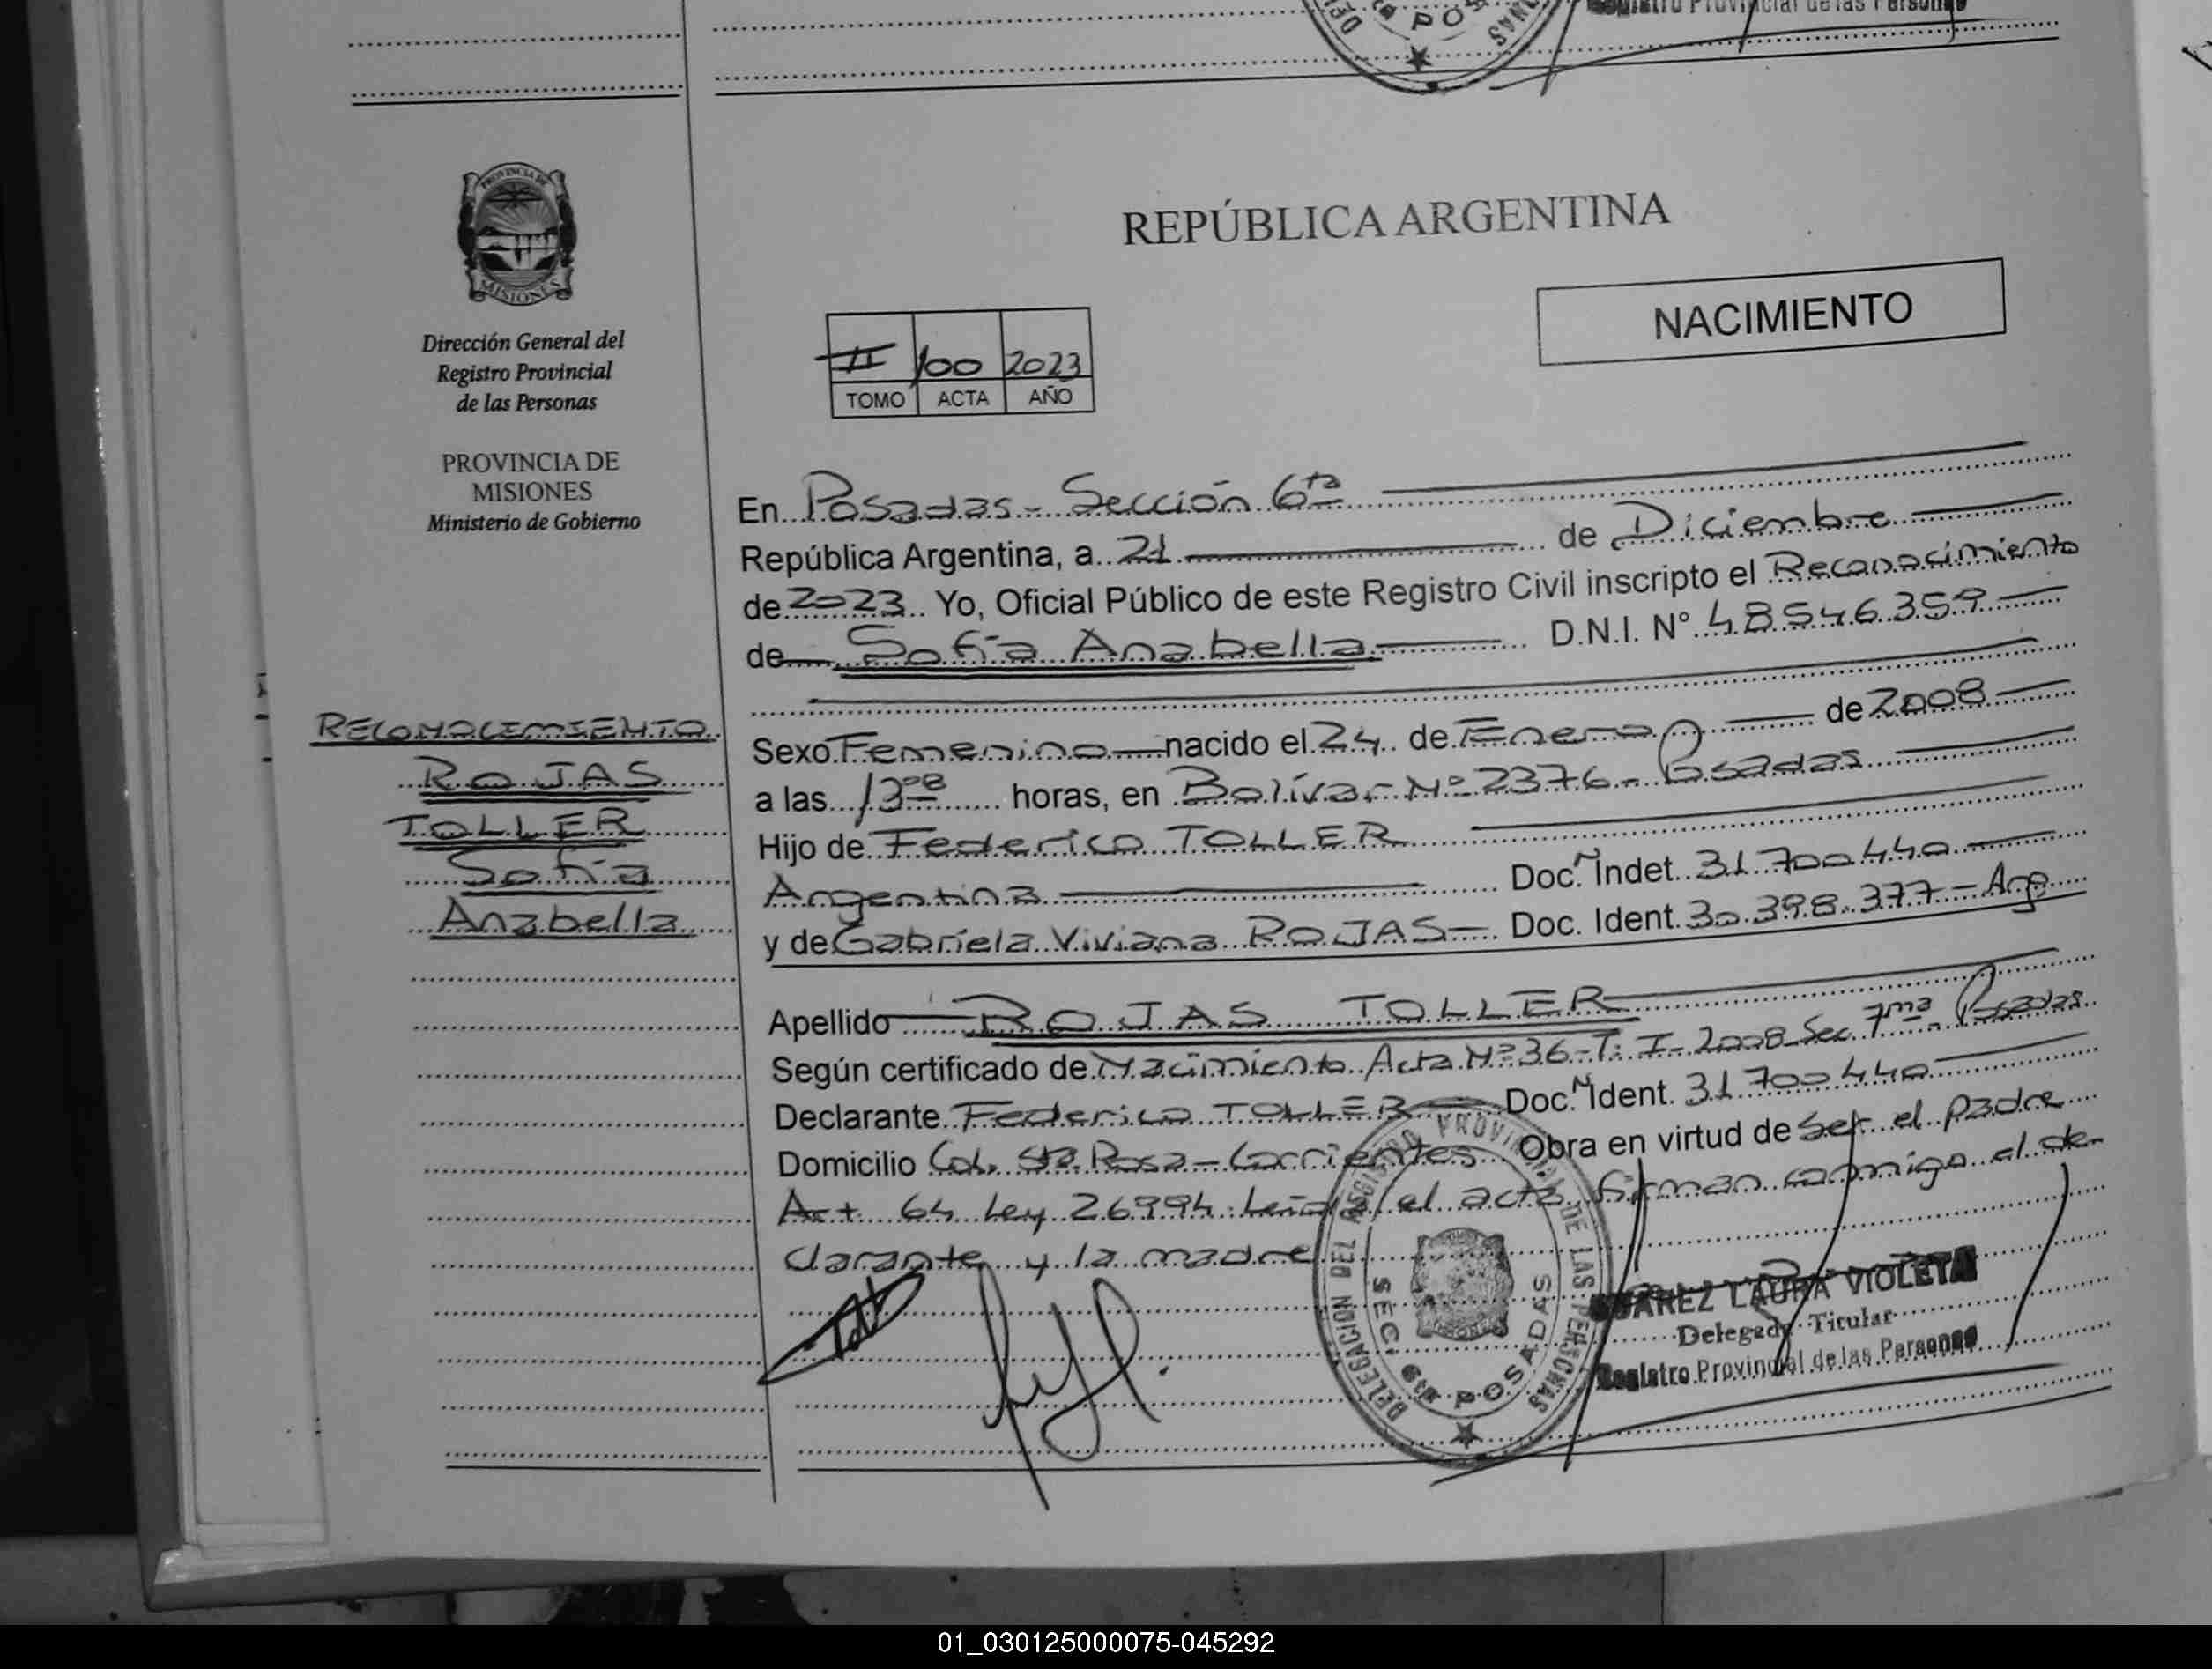 Registro Provincial de las Personas
PROVINCIA DE
MISIONES
Dirección General del
Registro Provincial
de las Personas
PROVINCIA DE
MISIONES
Ministerio de Gobierno
RECONOCIMIENTO
ROJAS
TOLLER
Sofía
Anabella
REPÚBLICA ARGENTINA
NACIMIENTO
II 100 2023
TOMO ACTA AÑO
En Posadas - Sección 6ta
República Argentina, a 21 de Diciembre
de 2023 Yo, Oficial Público de este Registro Civil inscripto el Reconocimiento
de Sofía Anabella D.N.I. N° 48546359
Sexo Femenino nacido el 24 de Enero de 2008
a las 13 horas, en Bolívar Nº 2376 - Posadas
Hijo de Federico TOLLER
Argentina Doc. N Indet. 31700440
y de Gabriela Viviana ROJAS Doc. Ident. 30.398.377 - Arg
Apellido ROJAS TOLLER
Según certificado de Nacimiento Acta Nº 36 - T: I - 2008 Sec 7ma Posadas
Declarante Federico TOLLER Doc. N Ident. 31700440
Domicilio Col. Sta. Rosa - Corrientes Obra en virtud de ser el padre
Art 64 Ley 26994. Leída el acta firman conmigo el de-
clarante y la madre
DELEGACION DEL REGISTRO PROVINCIAL DE LAS PERSONAS
SEC. 6ta POSADAS
SUAREZ LAURA VIOLETA
Delegada Titular
Registro Provincial de las Personas
01_030125000075-045292